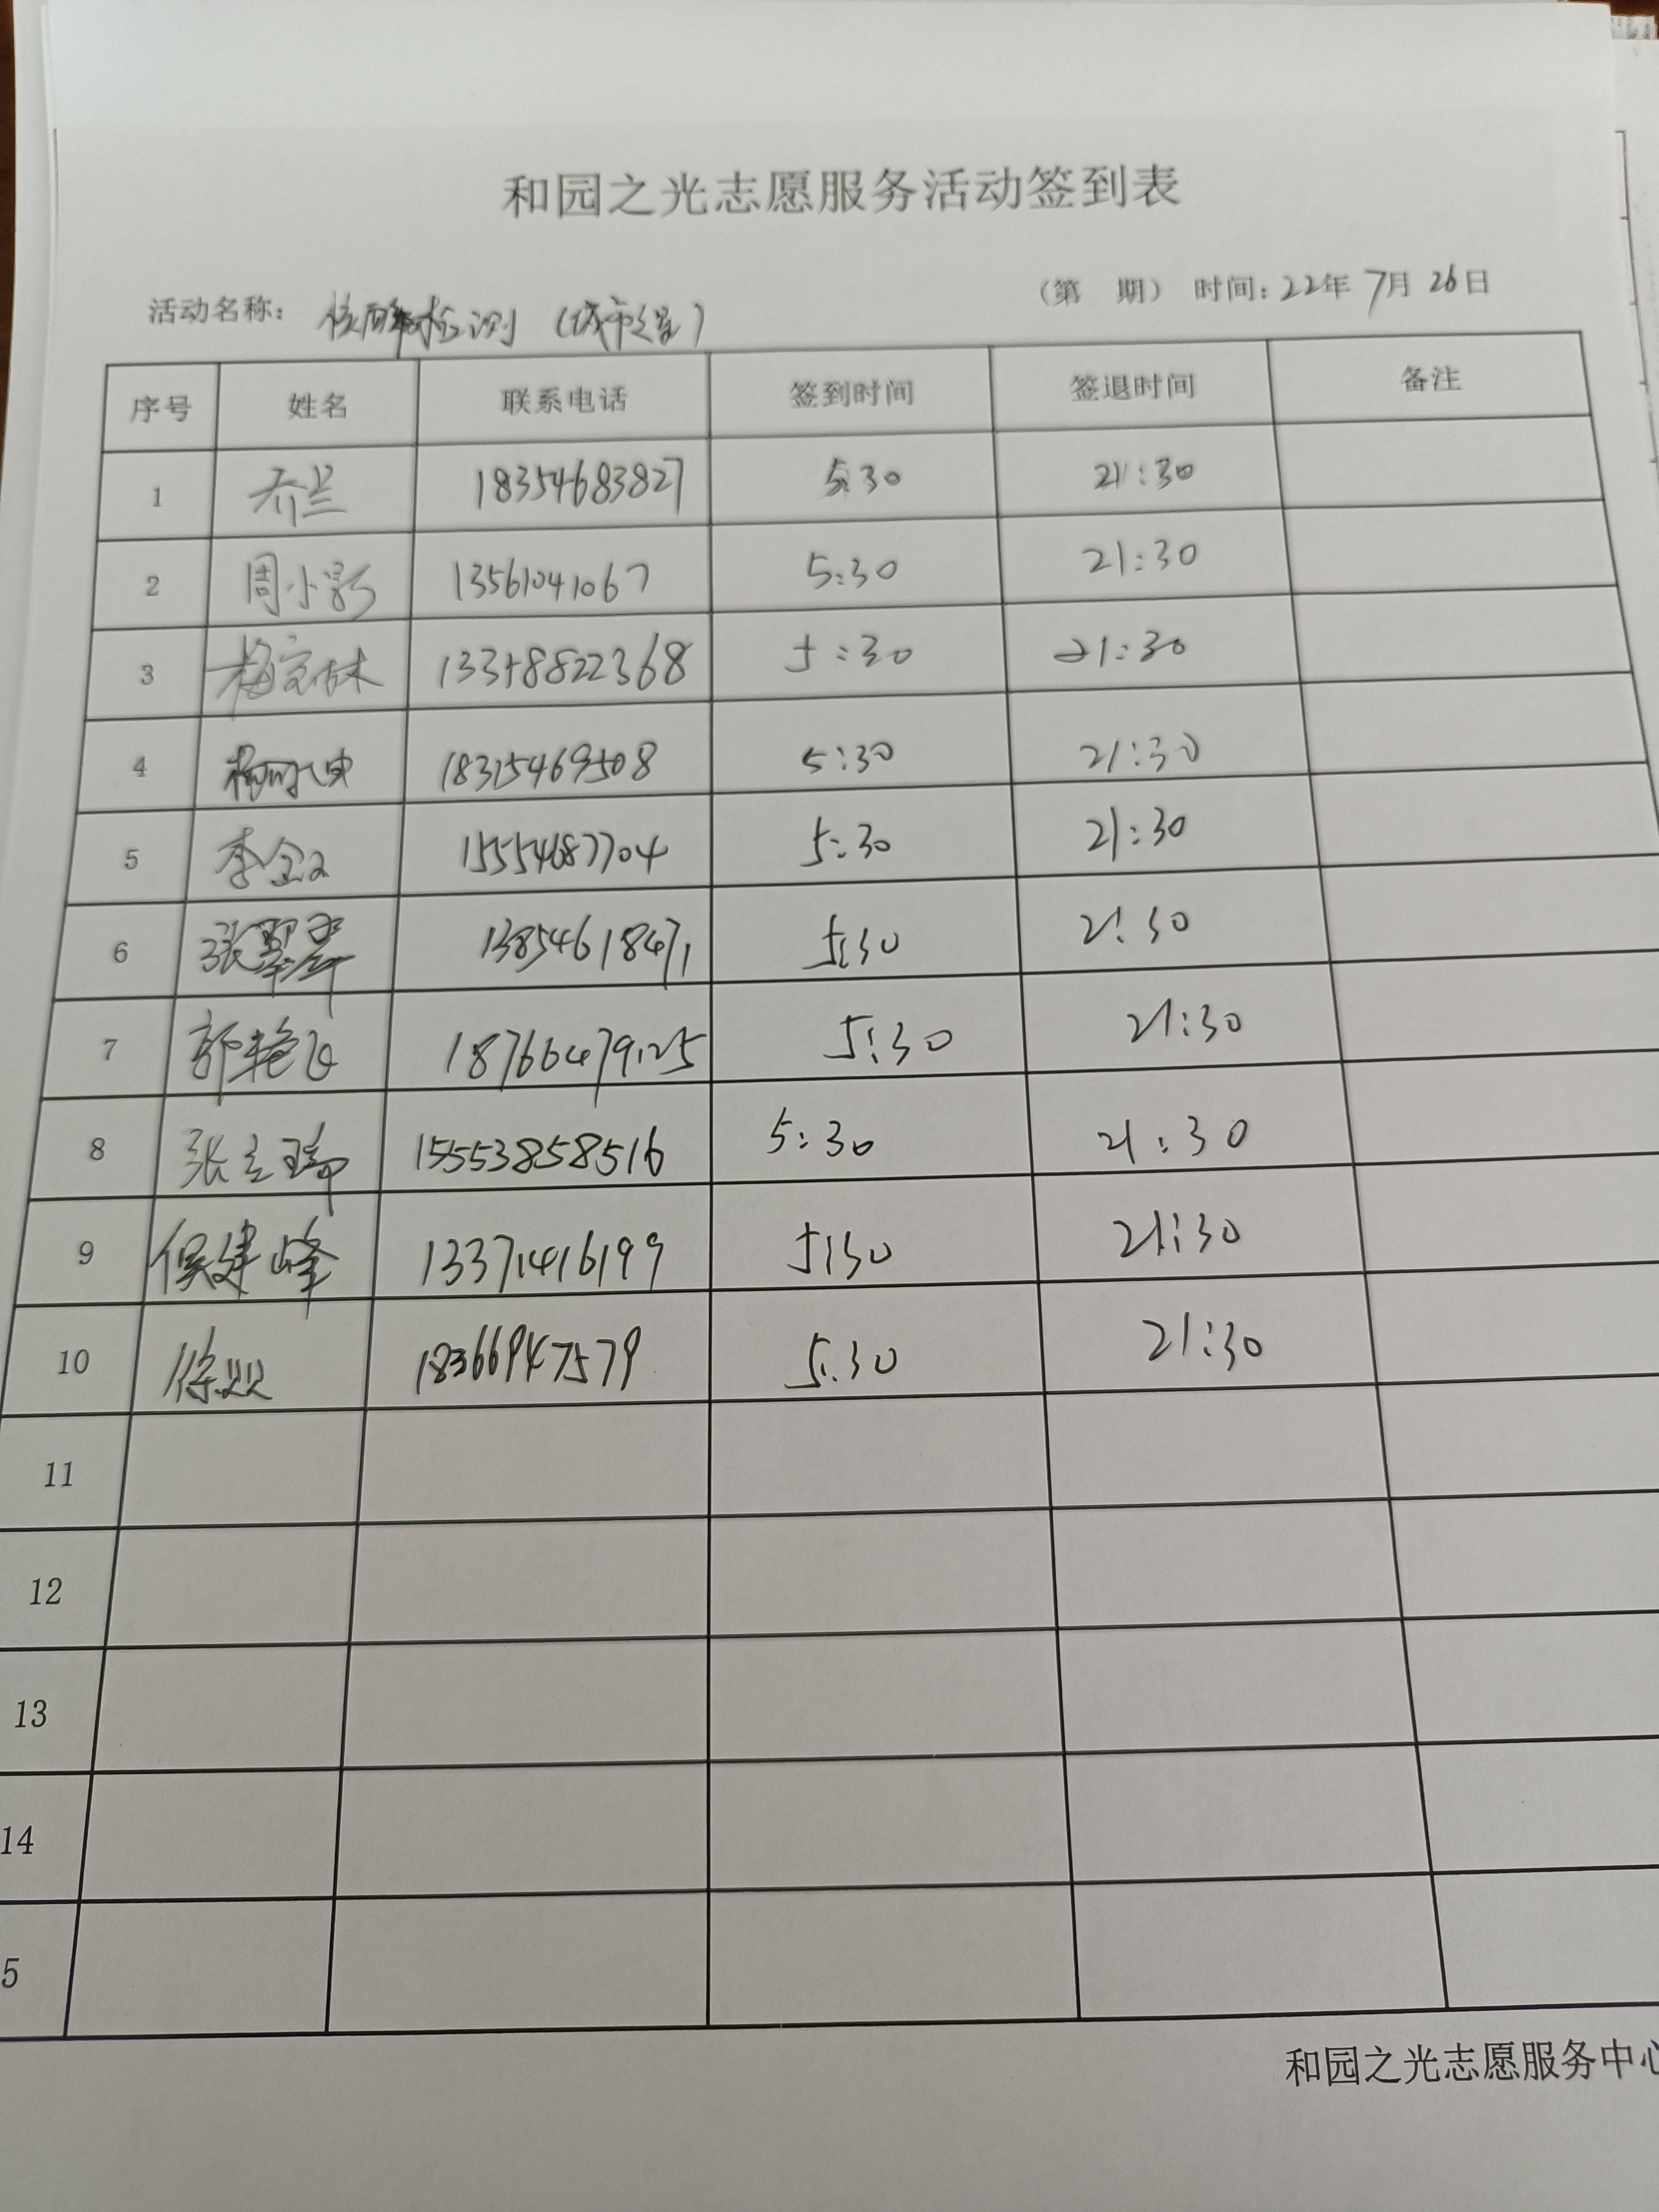 和园之光志愿服务活动签到表
活动名称： 核酸检测（城市之星） （第 期） 时间：22年7月26日
序号 姓名 联系电话 签到时间 签退时间 备注
1 乔兰 18354683827 5:30 21:30
2 周小影 13561041067 5:30 21:30
3 梅宗林 13358822368 5:30 21:30
4 18315469508 5:30 21:30
5 李金 15554687704 5:30 21:30
6 张翠萍 13854618471 5:30 21:30
7 郭艳飞 18766479125 5:30 21:30
8 张立瑞 15553858516 5:30 21:30
9 侯建峰 13371416199 5:30 21:30
10 徐双 18366947579 5:30 21:30
11
12
13
14
5
和园之光志愿服务中心